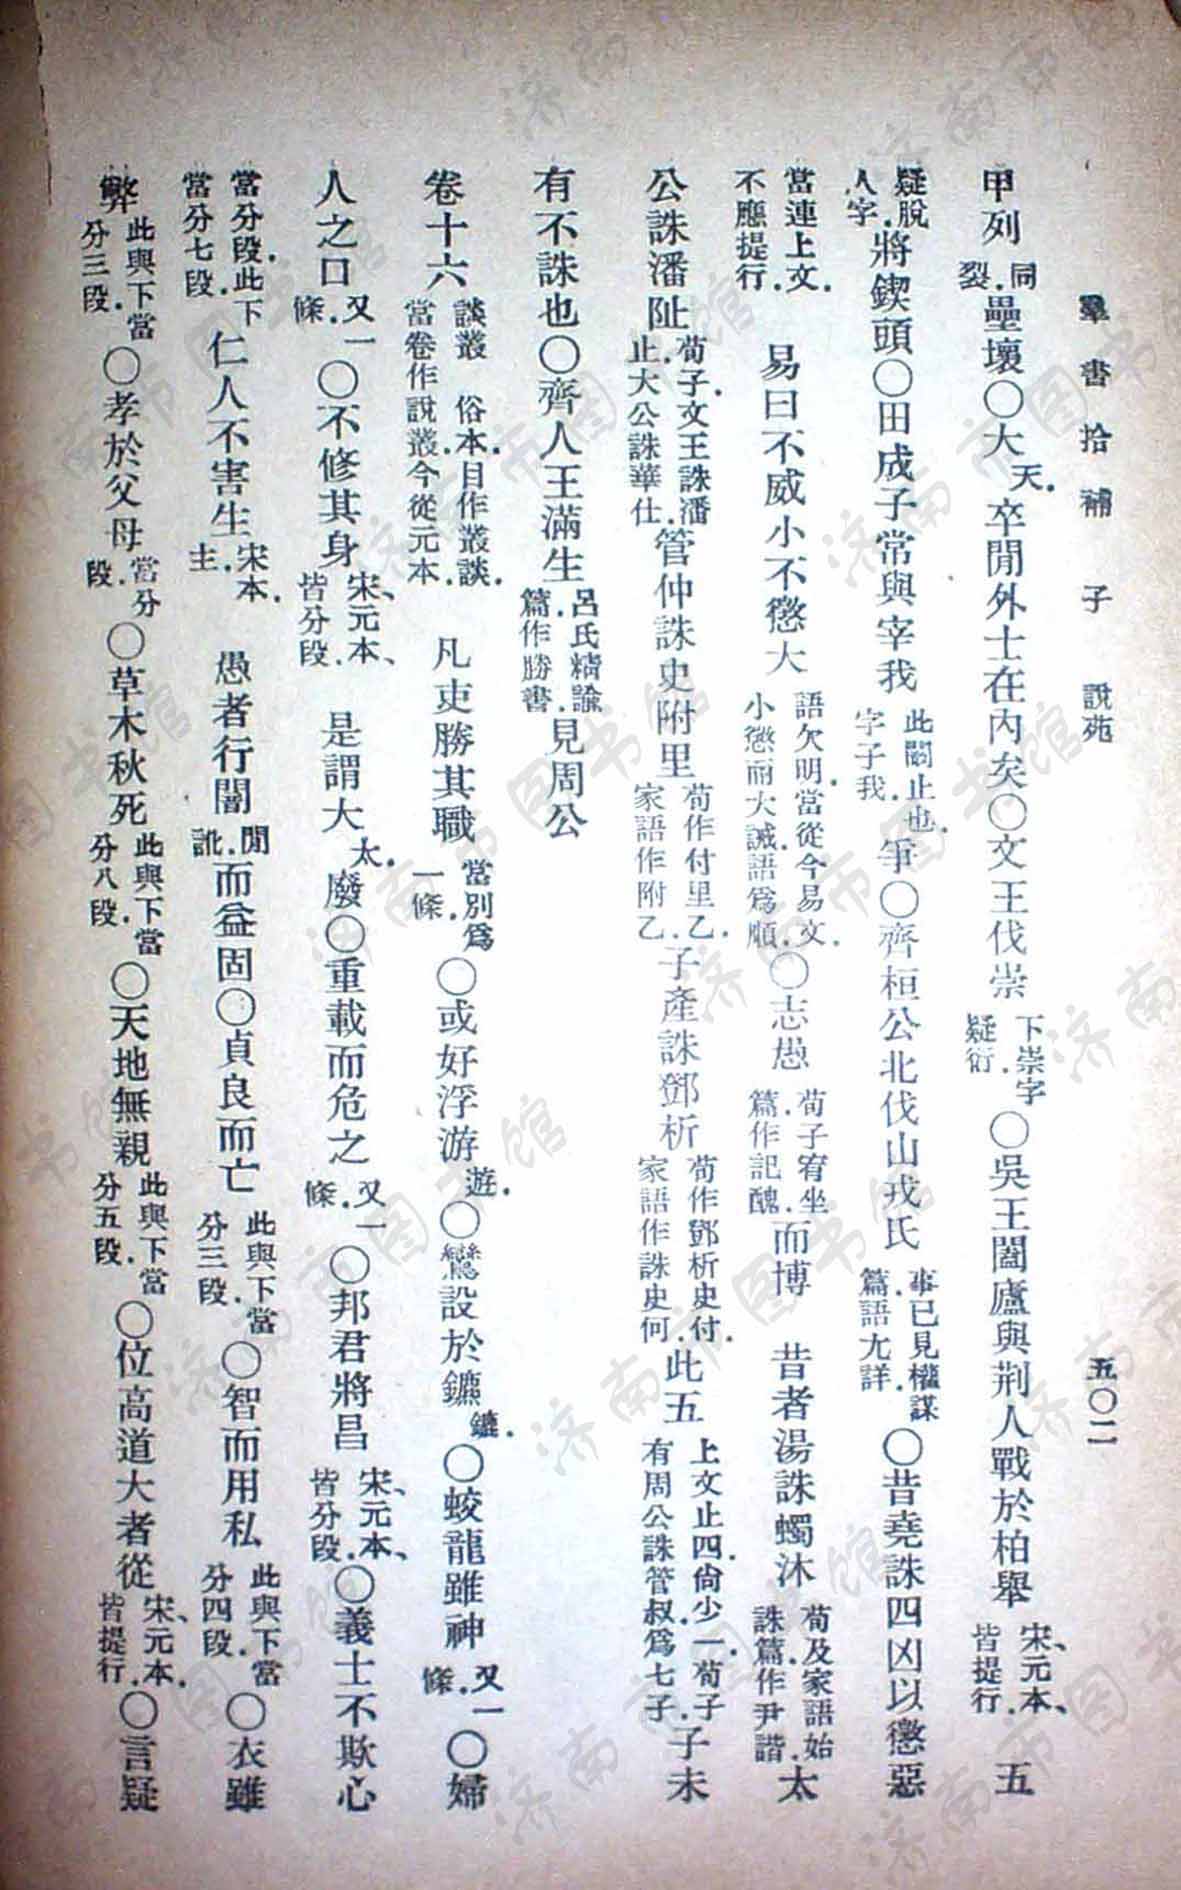 羣書拾補　子　說苑　五〇二
甲列同裂.壘壞〇大天.卒閒外士在內矣〇文王伐崇下崇字疑衍.〇吳王闔廬與荆人戰於柏舉宋、元本、皆提行.　五
疑脫人字.將鍥頭〇田成子常與宰我此闞止也.字子我.爭〇齊桓公北伐山戎氏事已見權謀篇.語尤詳.〇昔堯誅四凶以懲惡
當連上文.不應提行.　易曰不威小不懲大語欠明.當從今易文.小懲而大誡.語爲順.〇志愚荀子宥坐篇.作記醜.而博　昔者湯誅蠋沐荀及家語始誅篇.作尹諧.太
公誅潘阯荀子.文王誅潘止.大公誅華仕.管仲誅史附里荀作付里乙.家語作附乙.子產誅鄧析荀作鄧析史付.家語作誅史何.此五上文止四.尙少一.荀子有周公誅管叔.爲七子.子未
有不誅也〇齊人王滿生呂氏精諭篇.作勝書.見周公
卷十六談叢　俗本.目作叢談.當卷作說叢.今從元本.　凡吏勝其職當別爲一條.〇或好浮游遊.〇鸞設於鑣鑣.〇蛟龍雖神又一條.〇婦
人之口又一條.〇不修其身宋、元本、皆分段.　是謂大太.廢〇重載而危之又一條.〇邦君將昌宋、元本、皆分段.〇義士不欺心
當分段.此下當分七段.仁人不害生宋本.主.　愚者行闇閒.訛.而益固〇貞良而亡此與下當分三段.〇智而用私此與下當分四段.〇衣雖
弊此與下當分三段.〇孝於父母當分段.〇草木秋死此與下當分八段.〇天地無親此與下當分五段.〇位高道大者從宋、元本.皆提行.〇言疑